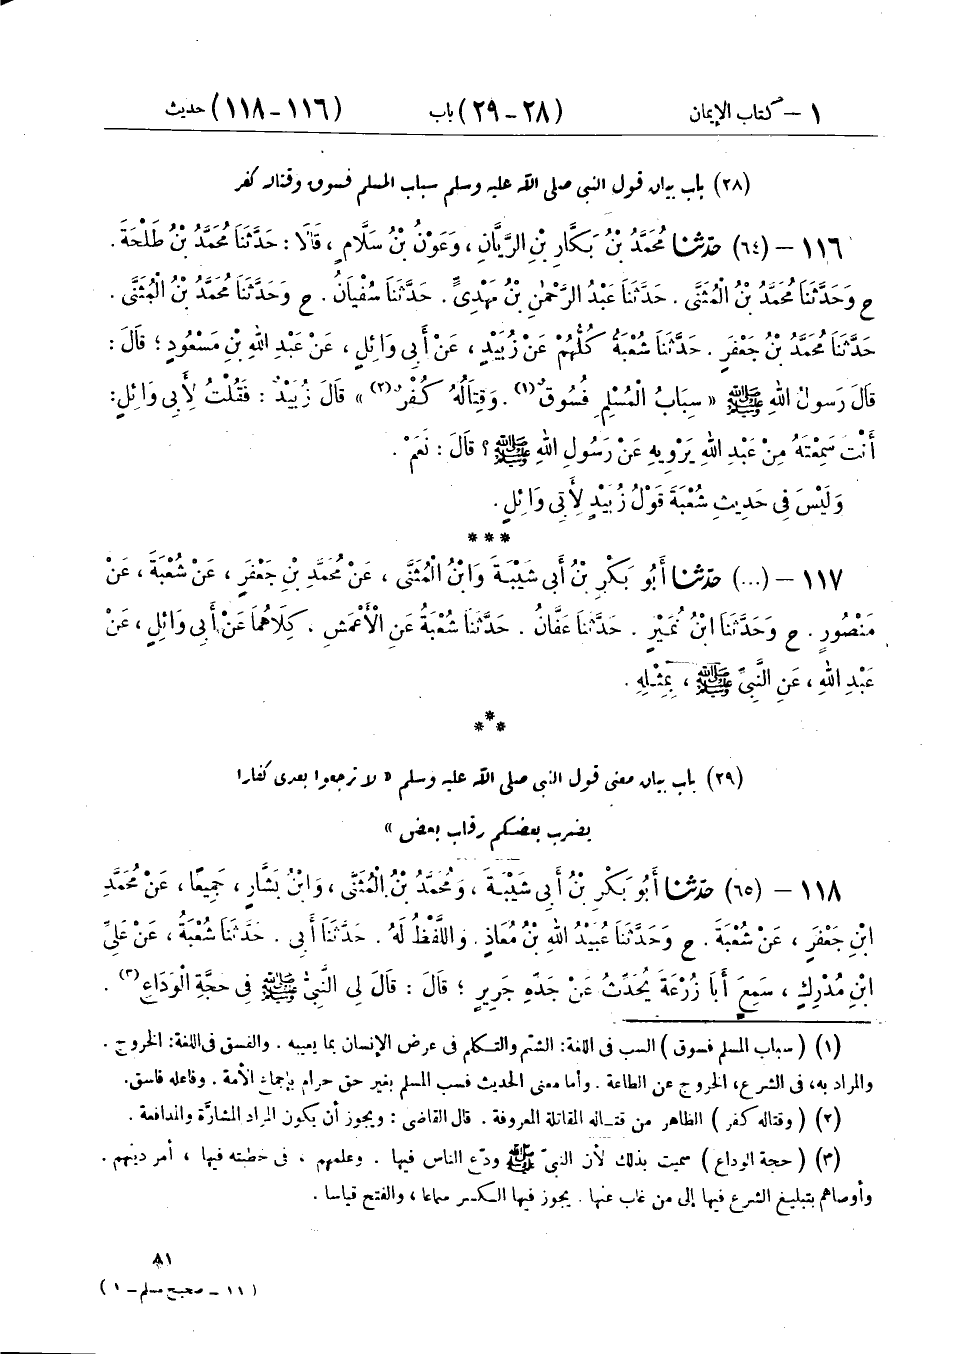 ١ – كتاب الإيمان (٢٨-٢٩) باب (١١٦-١١٨) حديث
(٢٨) باب بيان قول النبي صلى الله عليه وسلم سباب المسلم فسوق وقتاله كفر
١١٦ – (٦٤) حَدَّثَنَا مُحَمَّدُ بْنُ بَكَّارِ بْنِ الرَّيَّانِ، وَعَوْنُ بْنُ سَلَّامٍ، قَالَا: حَدَّثَنَا مُحَمَّدُ بْنُ طَلْحَةَ.
ح وَحَدَّثَنَا مُحَمَّدُ بْنُ الْمُثَنَّى. حَدَّثَنَا عَبْدُ الرَّحْمٰنِ بْنُ مَهْدِيٍّ. حَدَّثَنَا سُفْيَانُ. ح وَحَدَّثَنَا مُحَمَّدُ بْنُ الْمُثَنَّى.
حَدَّثَنَا مُحَمَّدُ بْنُ جَعْفَرٍ. حَدَّثَنَا شُعْبَةُ كُلُّهُمْ عَنْ زُبَيْدٍ، عَنْ أَبِي وَائِلٍ، عَنْ عَبْدِ اللهِ بْنِ مَسْعُودٍ؛ قَالَ:
قَالَ رَسُولُ اللهِ ﷺ «سِبَابُ الْمُسْلِمِ فُسُوقٌ(١). وَقِتَالُهُ كُفْرٌ(٢)» قَالَ زُبَيْدٌ: فَقُلْتُ لِأَبِي وَائِلٍ:
أَنْتَ سَمِعْتَهُ مِنْ عَبْدِ اللهِ يَرْوِيهِ عَنْ رَسُولِ اللهِ ﷺ؟ قَالَ: نَعَمْ.
وَلَيْسَ فِي حَدِيثِ شُعْبَةَ قَوْلُ زُبَيْدٍ لِأَبِي وَائِلٍ.
***
١١٧ – (...) حَدَّثَنَا أَبُو بَكْرِ بْنُ أَبِي شَيْبَةَ وَابْنُ الْمُثَنَّى، عَنْ مُحَمَّدِ بْنِ جَعْفَرٍ، عَنْ شُعْبَةَ، عَنْ
مَنْصُورٍ. ح وَحَدَّثَنَا ابْنُ نُمَيْرٍ. حَدَّثَنَا عَفَّانُ. حَدَّثَنَا شُعْبَةُ عَنِ الْأَعْمَشِ. كِلَاهُمَا عَنْ أَبِي وَائِلٍ، عَنْ
عَبْدِ اللهِ، عَنِ النَّبِيِّ ﷺ، بِمِثْلِهِ.
***
(٢٩) باب بيان معنى قول النبي صلى الله عليه وسلم «لا ترجعوا بعدى كفارا
يضرب بعضكم رقاب بعض»
١١٨ – (٦٥) حَدَّثَنَا أَبُو بَكْرِ بْنُ أَبِي شَيْبَةَ، وَمُحَمَّدُ بْنُ الْمُثَنَّى، وَابْنُ بَشَّارٍ، جَمِيعًا، عَنْ مُحَمَّدِ
ابْنِ جَعْفَرٍ، عَنْ شُعْبَةَ. ح وَحَدَّثَنَا عُبَيْدُ اللهِ بْنُ مُعَاذٍ. وَاللَّفْظُ لَهُ. حَدَّثَنَا أَبِي. حَدَّثَنَا شُعْبَةُ، عَنْ عَلِيِّ
ابْنِ مُدْرِكٍ، سَمِعَ أَبَا زُرْعَةَ يُحَدِّثُ عَنْ جَدِّهِ جَرِيرٍ؛ قَالَ: قَالَ لِي النَّبِيُّ ﷺ فِي حَجَّةِ الْوَدَاعِ(٣).
(١) (سباب المسلم فسوق) السب فى اللغة: الشتم والتكلم فى عرض الإنسان بما يعيبه. والفسق فى اللغة: الخروج.
والمراد به، فى الشرع، الخروج عن الطاعة. وأما معنى الحديث فسب المسلم بغير حق حرام بإجماع الأمة. وفاعله فاسق.
(٢) (وقتاله كفر) الظاهر من قتاله المقاتلة المعروفة. قال القاضى: ويجوز أن يكون المراد المشارّة والمدافعة.
(٣) (حجة الوداع) سميت بذلك لأن النبيّ ﷺ ودّع الناس فيها. وعلمهم، فى خطبته فيها، أمر دينهم.
وأوصاهم بتبليغ الشرع فيها إلى من غاب عنها. يجوز فيها الكسر سماعا، والفتح قياسا.
٨١
(١١ – صحيح مسلم – ١)